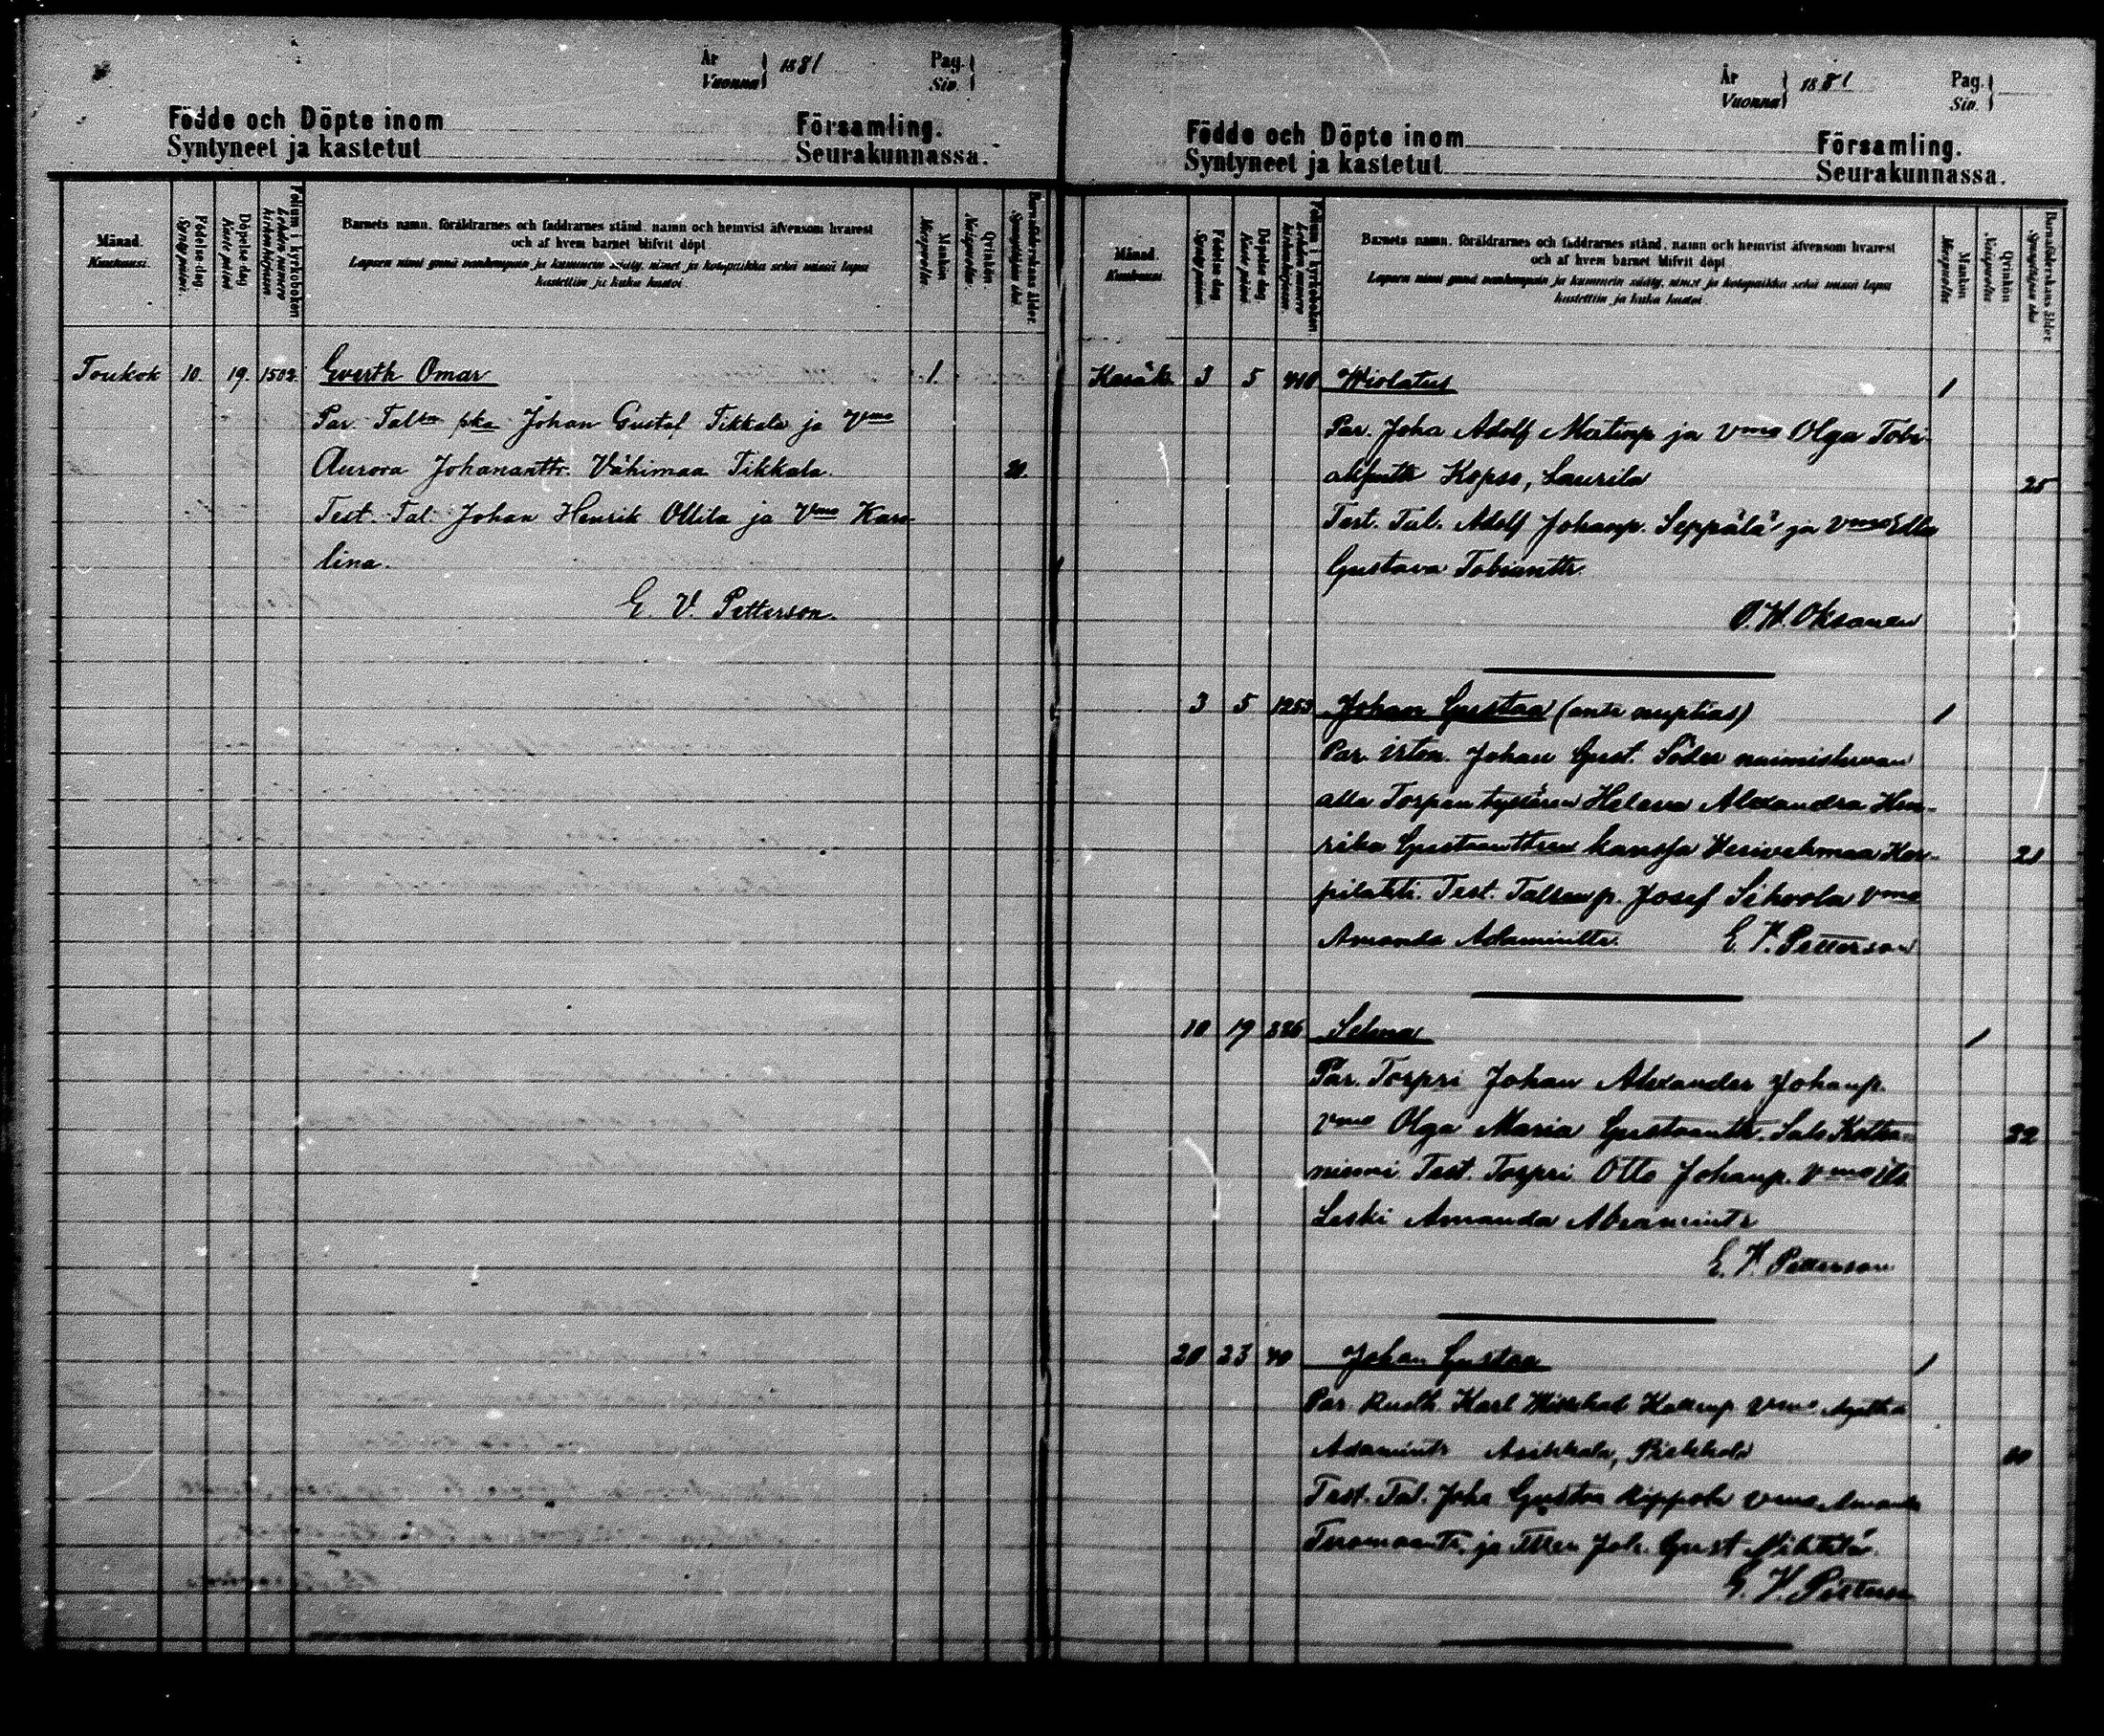 År
Vuonna 1881
Pag.
Siv.
Födde och Döpte inom Församling.
Syntyneet ja kastetut Seurakunnassa.
Månad.
Kuukausi.
Födelse dag
Syntymä päivä.
Döpelse dag
Kaste päivä
Folium i kyrkoboken.
Lehden numero kirkonkirjassa
Barnets namn, föräldrarnes och faddrarnes stånd, namn och hemvist äfvensom hvarest
och af hvem barnet blifvit döpt.
Lapsen nimi ynnä vanhempain ja kummein sääty, nimet ja kotopaikka sekä missä lapsi
kastettiin ja kuka kastoi.
Mankön
Miespuolia.
Qvinkön
Naispuolia.
Barnaföderskans ålder.
Toukok 10. 19. 1502 Ewerth Omar 1.
Par. Tal pka Johan Gustaf Tikkala ja Vmo
Aurora Johananttr. Vähimaa Tikkala. 20.
Test. Tal. Johan Henrik Ollila ja Vmo Karo
lina.
E. V. Petterson.
År
Vuonna 1881
Pag.
Siv.
Födde och Döpte inom Församling.
Syntyneet ja kastetut Seurakunnassa.
Månad.
Kuukausi.
Födelse dag
Syntymä päivä.
Döpelse dag
Kaste päivä
Folium i kyrkoboken.
Lehden numero kirkonkirjassa
Barnets namn, föräldrarnes och faddrarnes stånd, namn och hemvist äfvensom hvarest
och af hvem barnet blifvit döpt.
Lapsen nimi ynnä vanhempain ja kummein sääty, nimet ja kotopaikka sekä missä lapsi
kastettiin ja kuka kastoi.
Mankön
Miespuolia
Qvinkön
Naispuolia
Barnaföderskans ålder
Kesäk 3 5 410 Wiolatus 1
Par. Joha Adolf Matinp ja Vmo Olga Tobi
Kopso, Laurila 25
Test. Tal. Adolf Johanp. Seppälä ja Vmo Edla
Gustava Tobianttr.
O. W. Oksanen
3 5 1253 Johan Gustaa (ante nuptias) 1
Par. irton. Johan Gust. Söder naimisluvan
alla Torpan tyttären Helena Alexandra Hen-
rika Gustaanttren kanssa Vesivehmaa Kor-
pilahti. Test. Talrenp. Josef Sihvola Vmo
Amanda Adaminttr. E. V. Petterson
10 19 226 Selma 1
Par. Torpri Johan Alexander Johanp.
Vmo Olga Maria Gustaanttr. Salo Kotka- 22
niemi Test. Torpri Otto Johanp. Vmo
Leski Amanda Abramintr
E. V. Petterson
20 23 40 Johan Gustaa 1
Par. Karl Vmo Agatha
Adamintr Asikkala, Pirkkola
Test. Tal. Joha Gustaa Vmo Amanda
Tuomantr. ja Ttren Joh. Gust.
E. V. Petterson